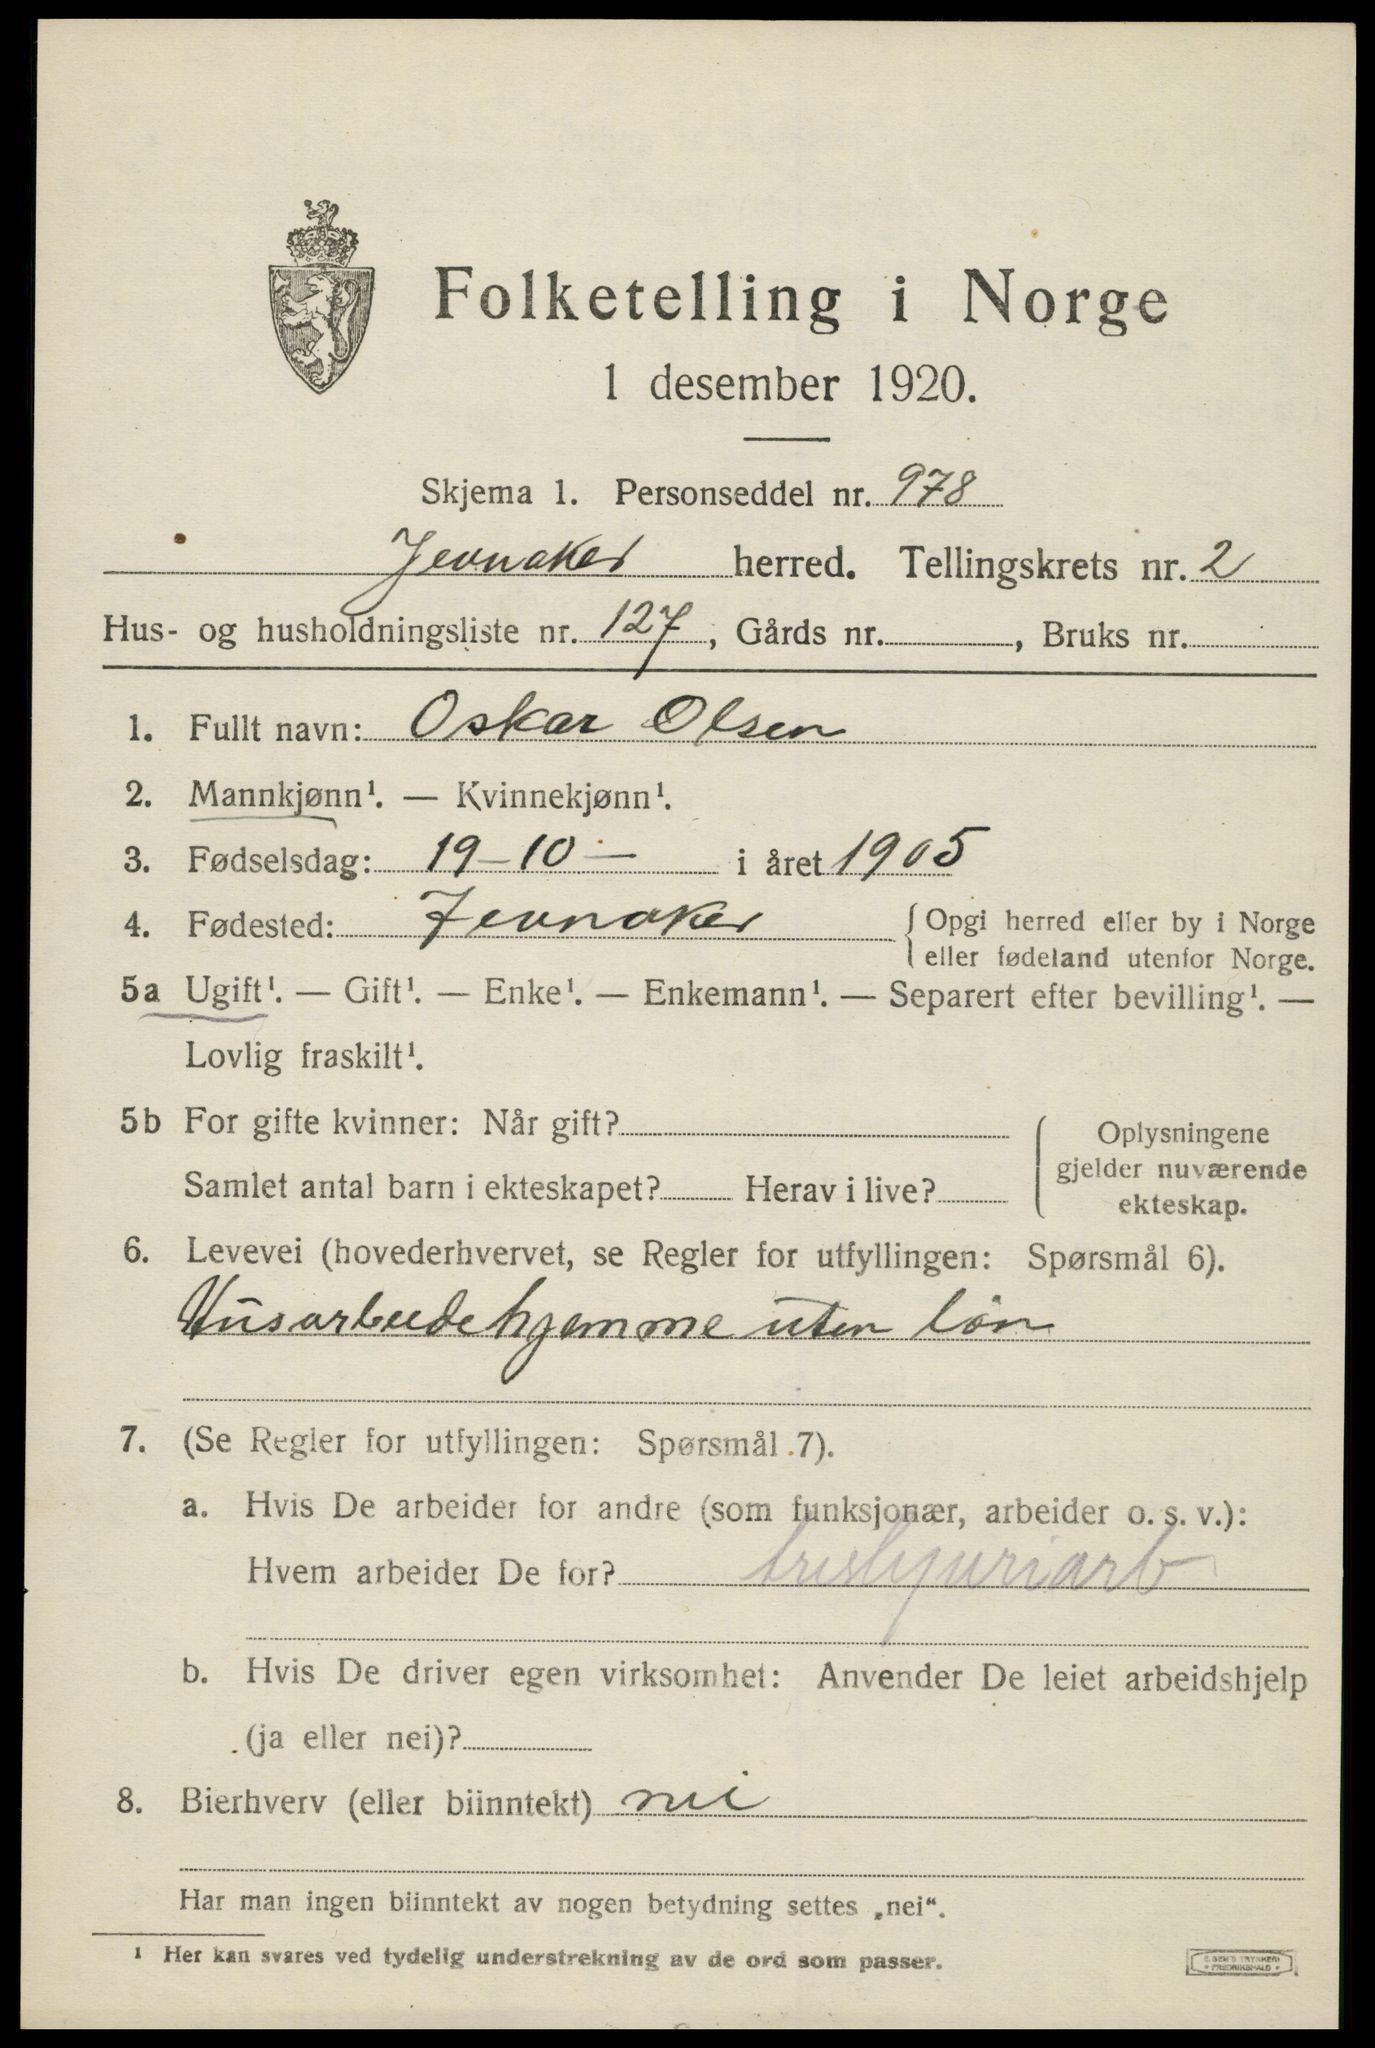 Folketelling i Norge
1 desember 1920.
Skjema 1. Personseddel nr. 978
Jevnaker herred. Tellingskrets nr. 2
Hus- og husholdningsliste nr. 127, Gårds nr. , Bruks nr.
1. Fullt navn: Oskar Olsen
2. Mannkjønn¹. — Kvinnekjønn¹.
3. Fødselsdag: 19-10- i året 1905
4. Fødested: Jevnaker { Opgi herred eller by i Norge
eller fødeland utenfor Norge.
5a Ugift¹. — Gift¹. — Enke¹. — Enkemann¹. — Separert efter bevilling¹. —
Lovlig fraskilt¹.
5b For gifte kvinner: Når gift?
Samlet antal barn i ekteskapet? Herav i live?
Oplysningene
gjelder nuværende
ekteskap.
6. Levevei (hovederhvervet, se Regler for utfyllingen: Spørsmål 6).
Husarbeide hjemme uten løn
7. (Se Regler for utfyllingen: Spørsmål 7).
a. Hvis De arbeider for andre (som funksjonær, arbeider o. s. v.):
Hvem arbeider De for?
b. Hvis De driver egen virksomhet: Anvender De leiet arbeidshjelp
(ja eller nei)?
8. Bierhverv (eller biinntekt) nei
Har man ingen biinntekt av nogen betydning settes „nei“.
¹ Her kan svares ved tydelig understrekning av de ord som passer.